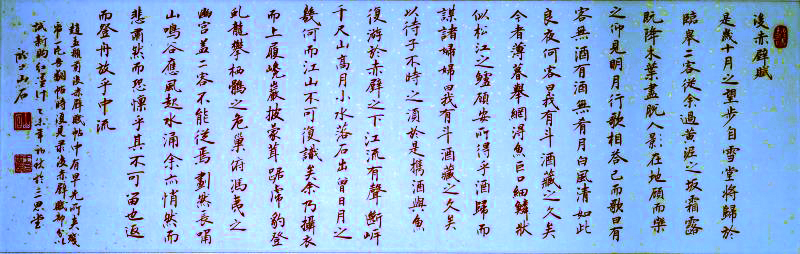 後赤壁賦
是歲十月之望步自雪堂將歸於
臨皋二客從余過黃泥之坂霜露
既降木葉盡脫人影在地顧而樂
之仰見明月行歌相答已而歎曰有
客無酒有酒無肴月白風清如此
良夜何客曰我有斗酒藏之久矣
今者薄暮舉網得魚巨口細鱗狀
似松江之鱸顧安所得乎酒歸而
謀諸婦婦曰我有斗酒藏之久矣
以待子不時之須於是攜酒與魚
復游於赤壁之下江流有聲斷岸
千尺山高月小水落石出曾日月之
幾何而江山不可復識矣余乃攝衣
而上履巉巖披蒙茸踞虎豹登
虬龍攀栖鶻之危巢俯馮夷之
幽宮蓋二客不能從焉劃然長嘯
山鳴谷應風起水涌余亦悄然而
悲肅然而恐懍乎其不可留也返
而登舟放乎中流
趙孟頫前後赤壁賦帖中有所失殘
後赤壁賦部分
試新購紅墨於三思堂
山石